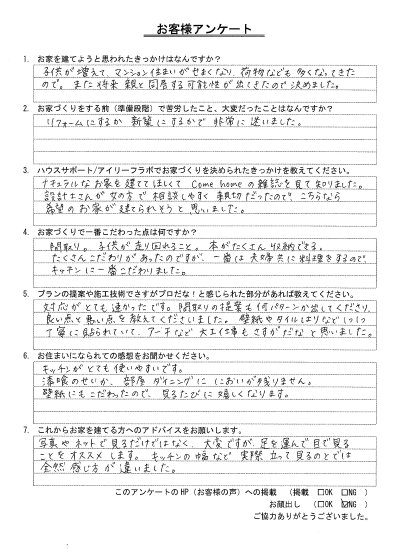 お客様アンケート
1. お家を建てようと思われたきっかけはなんですか?
子供が増えて、マンション住まいがせまくなり、荷物なども多くなってきた
ので。また将来 親と同居する可能性が出てきたので決めました。
2. お家づくりをする前(準備段階)で苦労したこと、大変だったことはなんですか?
リフォームにするか 新築にするかで 非常に迷いました。
3. ハウスサポート/アイリーフラボでお家づくりを決められたきっかけを教えてください。
ナチュラルなお家を建ててほしくて Come homeの雑誌を見て知りました。
設計士さんが女の方で 相談しやすく 親切だったので、こちらなら
希望のお家が建てられそうと 思いました。
4. お家づくりで一番こだわった点は何ですか?
間取り。子供が走り回れること。本がたくさん収納できる。
たくさんこだわりがあったのですが、一番は夫婦共に料理をするので、
キッチンに一番こだわりました。
5. プランの提案や施工技術でさすがプロだな!と感じられた部分があれば教えてください。
対応がとても速かったです。間取りの提案も何パターンか出してくださり、
良い点と悪い点を教えてくださいました。壁紙やタイルはりなど 1つ1つ
丁寧に貼られていて、アーチなど 大工仕事もさすがだなと思いました。
6. お住まいになられての感想をお聞かせください。
キッチンがとても使いやすいです。
漆喰のせいか、部屋 ダイニングに においが残りません。
壁紙にもこだわったので、見るたびに嬉しくなります。
7. これからお家を建てる方へのアドバイスをお願いします。
写真やネットで見るだけではなく、大変ですが、足を運んで目で見る
ことをオススメします。キッチンの幅など 実際 立って見るのとでは
全然 感じ方が違いました。
このアンケートのHP(お客様の声)への掲載 (掲載 □OK ☑NG )
お顔出し (□OK ☑NG )
ご協力ありがとうございました。